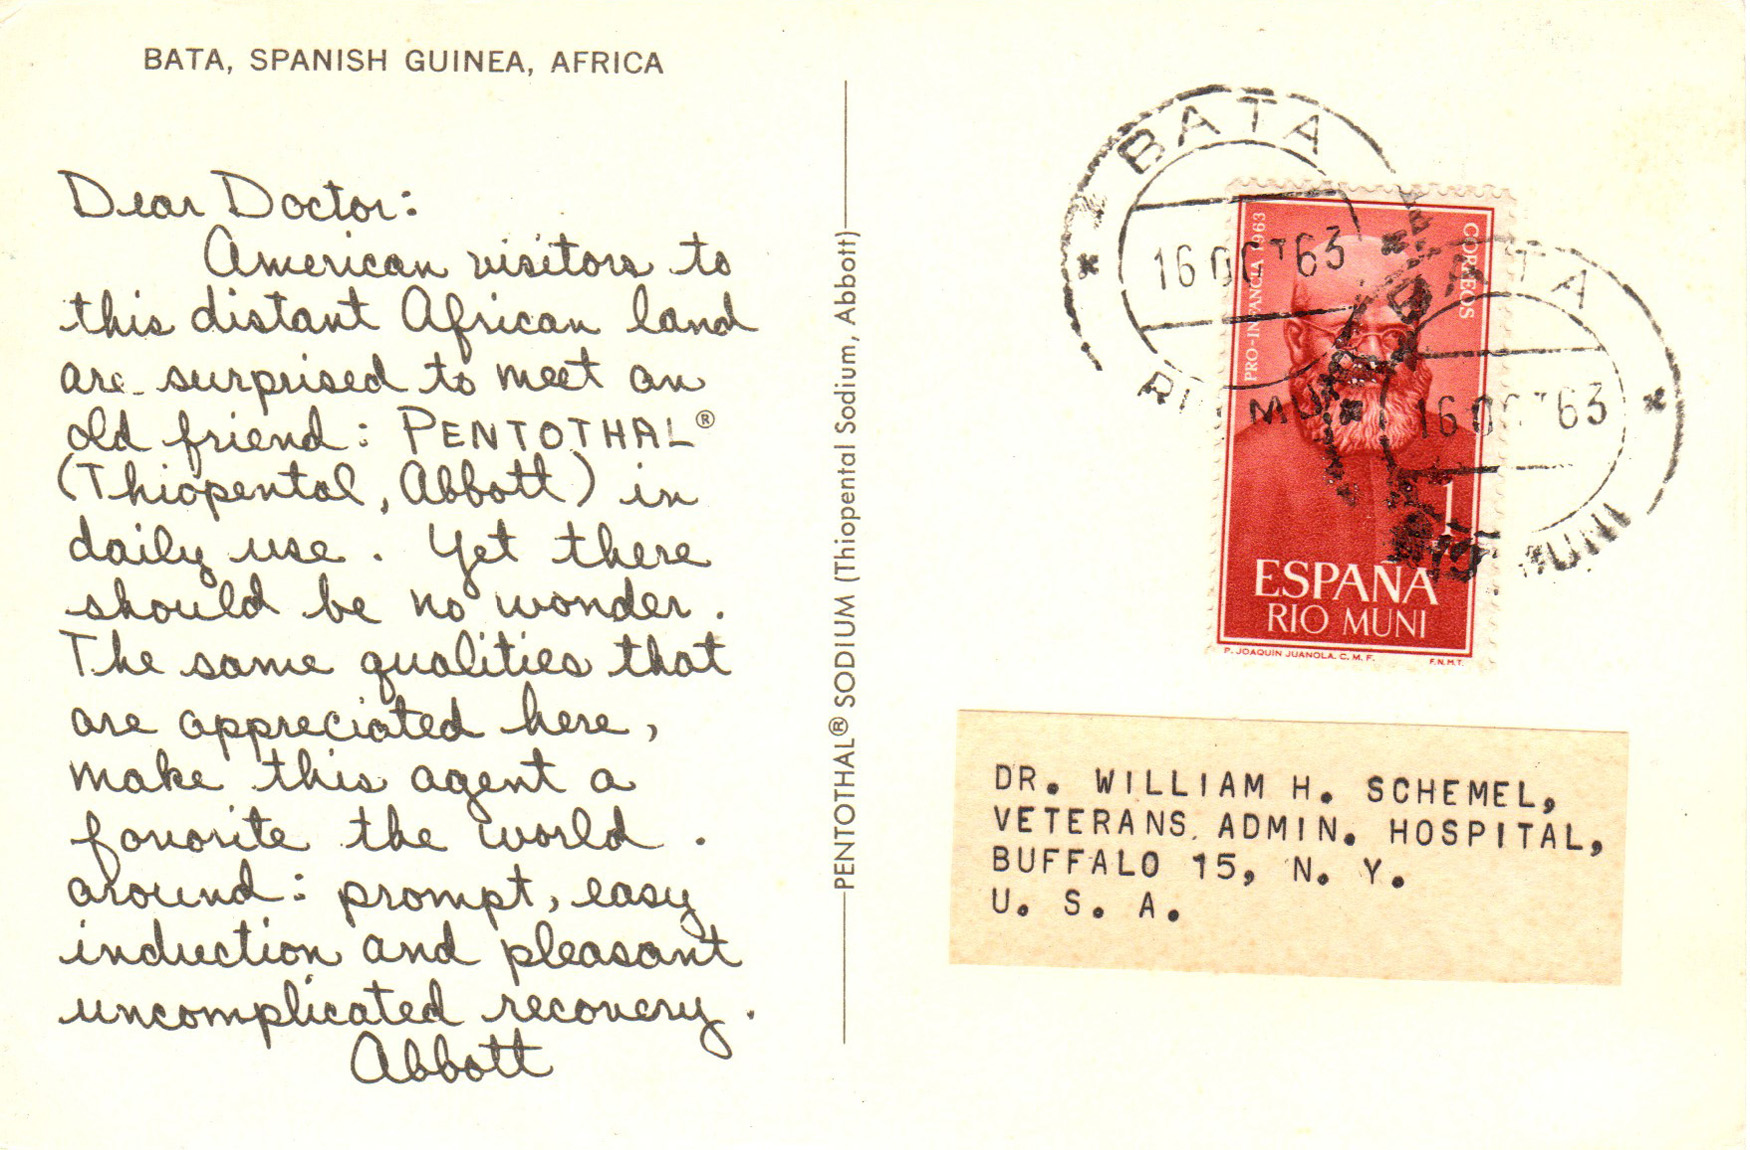 BATA, SPANISH GUINEA, AFRICA
Dear Doctor:
American visitors to
this distant African land
are surprised to meet an
old friend: PENTOTHAL®
(Thiopental, Abbott) in
daily use. Yet there
should be no wonder.
The same qualities that
are appreciated here,
make this agent a
favorite the world.
around: prompt, easy
induction and pleasant
uncomplicated recovery.
Abbott
PENTOTHAL® SODIUM (Thiopental Sodium, Abbott)
BATA
16 OCT 63
RIO MUNI
BATA
16 OCT 63
MUNI
PRO-INFANCIA 1963
CORREOS
1
ESPAÑA
RIO MUNI
P. JOAQUÍN JUANOLA. C. M. F.
F.N.M.T.
DR. WILLIAM H. SCHEMEL,
VETERANS ADMIN. HOSPITAL,
BUFFALO 15, N. Y.
U. S. A.